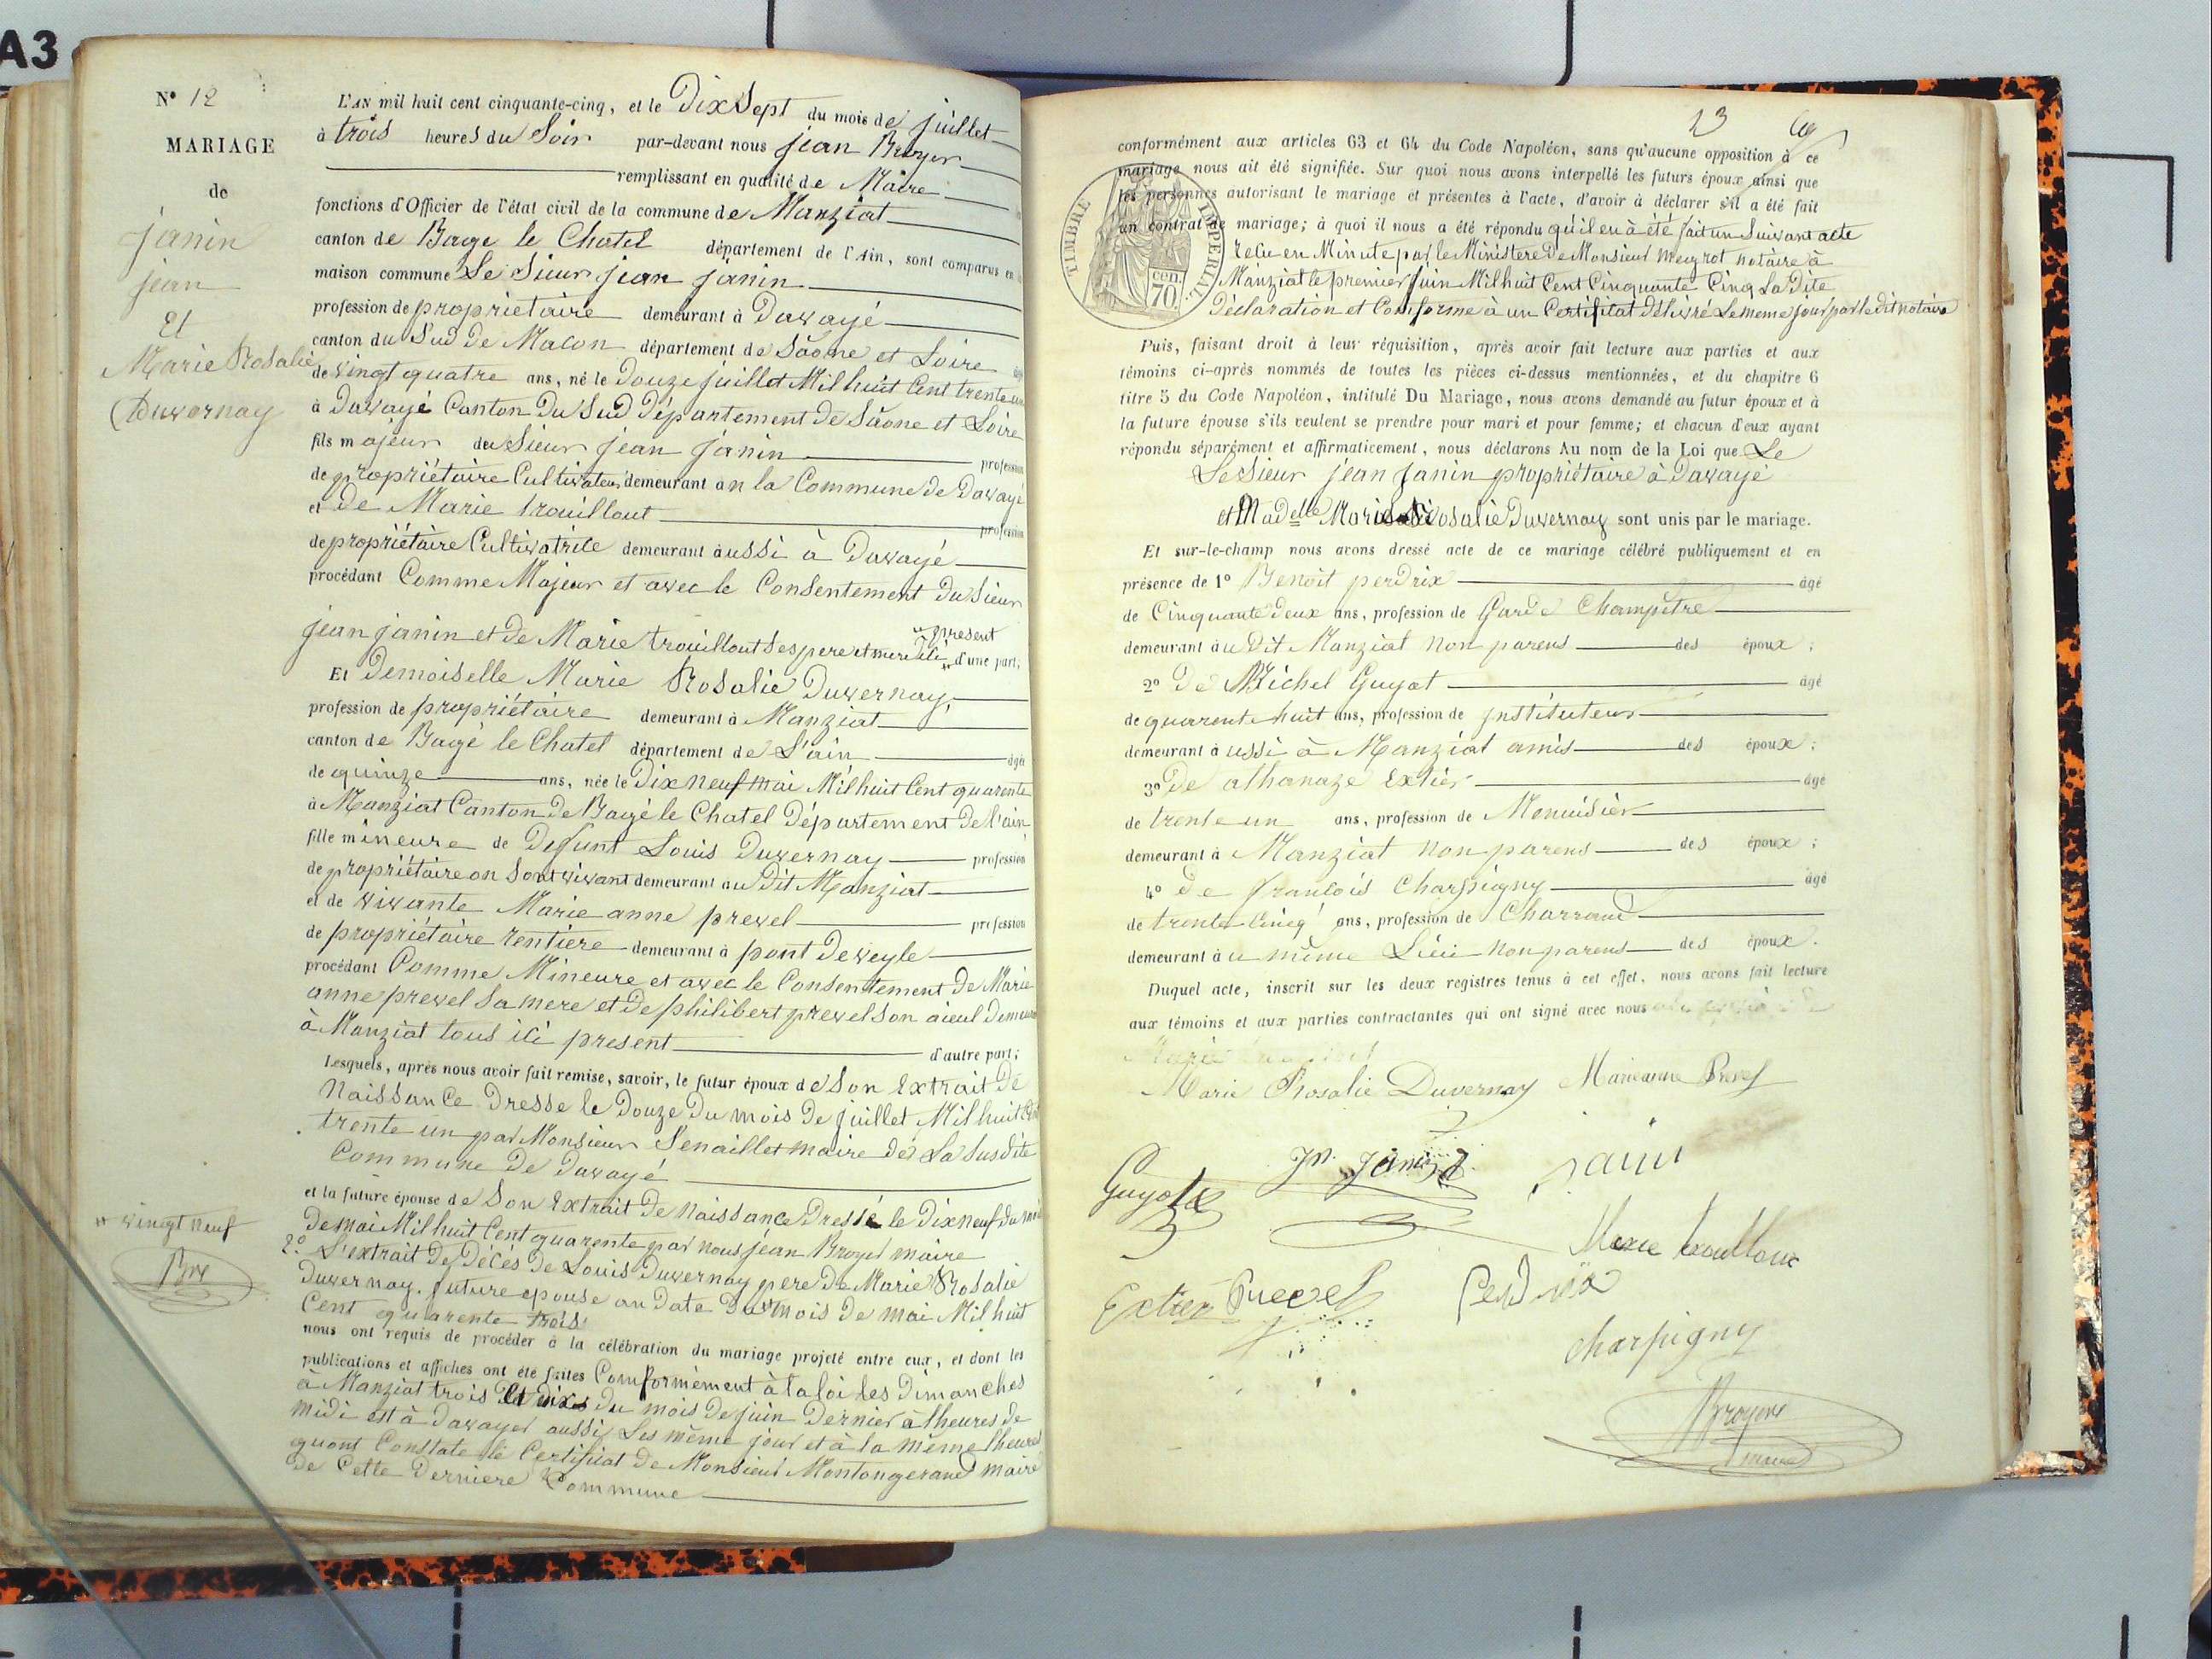 A3
N° 12
MARIAGE
de
janin
jean
Et
Marie Rosalie
Duvernay
L'AN mil huit cent cinquante-cinq, et le Dix Sept du mois de juillet
à trois heures du Soir par-devant nous jean Broyer
remplissant en qualité de Maire
fonctions d'Officier de l'état civil de la commune de Manziat
canton de Bage le Chatel département de l'Ain, sont comparus en
maison commune Le Sieur jean janin
profession de propriétaire demeurant à Davayé
canton du Sud De Macon département de Sâone et Loire
de vingt quatre ans, né le Douze juillet Mil huit Cent trente un
à Davayé Canton Du Sud Département de Sâone et Loire
fils majeur du Sieur jean janin profession
de propriétaire Cultivateur demeurant an la Commune de Davayé
et de Marie trouillout profession
de propriétaire Cultivatrice demeurant aussi à Davayé
procédant Comme Majeur et avec le Consentement Du Sieur
jean janin et de Marie trouillout Ses pere et mere ici present d'une part;
Et Demoiselle Marie Rosalie Duvernay,
profession de propriétaire demeurant à Manziat
canton de Bagé le Chatel département de L'ain âgée
de quinze ans, née le Dix neuf mai Mil huit Cent quarente
à Manziat Canton de Bagé le Chatel Département De l'ain
fille mineure de Defunt Louis Duvernay profession
de propriétaire on Sont vivant demeurant au Dit Manziat
et de vivante Marie anne prevel profession
de propriétaire rentière demeurant à pont de veyle
procédant Comme Mineure et avec le Consentement De Marie
anne prevel Sa mere et de philibert prevel Son aieul Demeurant
à Manziat tous ici present d'autre part;
Lesquels, après nous avoir fait remise, savoir, le futur époux de Son Extrait De
Naissance Dresse le Douze Du mois De juillet Mil huit Cent
trente un par Monsieur Senaillet maire de La Susdite
Commune De Davayé
et la future épouse de Son Extrait De Naissance Dressé le Dix neuf du mois
De mai Mil huit Cent quarente par nous jean Broyer maire
2° L'extrait De Décés De Louis Duvernay pere De Marie Rosalie
Duvernay future epouse an Date Du mois De mai Mil huit
Cent quarente trois
vingt neuf
Bro
nous ont requis de procéder à la célébration du mariage projeté entre eux, et dont les
publications et affiches ont été faites Comformément à la loi les Dimanches
à Manziat trois et dix Du mois De juin Dernier à lheures de
midi est à Davayer aussi Les même jour et à la même lheures
quont Constate le Certificat De Monsieur Montongerand maire
De Cette Derniere Commune
23
conformément aux articles 63 et 64 du Code Napoléon, sans qu'aucune opposition à ce
mariage nous ait été signifiée. Sur quoi nous avons interpellé les futurs époux ainsi que
les personnes autorisant le mariage et présentes à l'acte, d'avoir à déclarer s'il a été fait
un contrat de mariage; à quoi il nous a été répondu qu'il en à été fait un Suivant acte
TIMBRE IMPERIAL.
cen.
70
recu en Minute par le Ministere De Monsieur Meyrot notaire à
Manziat le premier juin Mil huit Cent Cinquante Cinq La Dite
Déclaration et Conforme à un Certifitat Délivré Le meme jour par le Dit notaire
Puis, faisant droit à leur réquisition, après avoir fait lecture aux parties et aux
témoins ci-après nommés de toutes les pièces ci-dessus mentionnées, et du chapitre 6
titre 5 du Code Napoléon, intitulé Du Mariage, nous avons demandé au futur époux et à
la future épouse s'ils veulent se prendre pour mari et pour femme; et chacun d'eux ayant
répondu séparément et affirmativement, nous déclarons Au nom de la Loi que Le
Le Sieur jean janin propriétaire à Davayé
et Madelle Marie Rosalie Duvernay sont unis par le mariage.
Et sur-le-champ nous avons dressé acte de ce mariage célébré publiquement et en
présence de 1° Benoit perdrix âgé
de Cinquante deux ans, profession de Garde Champêtre
demeurant au Dit Manziat non parens des époux;
2° De Michel Guyot âgé
de quarente huit ans, profession de jnstituteur
demeurant aussi à Manziat amis des époux;
3° De athanaze Extier âgé
de trente un ans, profession de Menuisier
demeurant à Manziat non parens des époux;
4° de francois Charpigny âgé
de trente Cinq ans, profession de Charron
demeurant au même Lieu non parens des époux.
Duquel acte, inscrit sur les deux registres tenus à cet effet, nous avons fait lecture
aux témoins et aux parties contractantes qui ont signé avec nous
Marie Rosalie Duvernay Marieanne Prevel
Jn. Janin janin
Guyot
Marie trouilloux
Extier Prevel Perdrix
charpigny
Broyer
maire